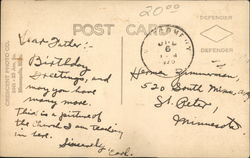 20.00
POST CARD
DEFENDER
DEFENDER
DEC
6
Dear Father:-
Birthday
Greetings, and
may you have
many more.
This is a picture of
the church I am teaching
in here.
Sincerely
Carl.
Herman Zimmerman
520 South Minn.
St. Peter,
Minnesota